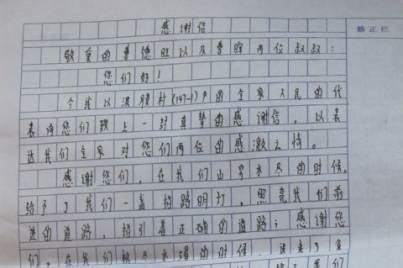 感谢信
敬爱的曹德旺以及曹晖两位叔叔：
您们好！
今我以 村(147-1)户的全家人民的代
表 您们 上一封真挚的感谢信，以表
达我们全家对您们两位的感激之情。
感谢您们，在我们山穷水尽的时候，
给予了我们一盏 路明灯，照亮我们前
进的道路，指引着正确的道路；感谢您
们，在我们 的时候，